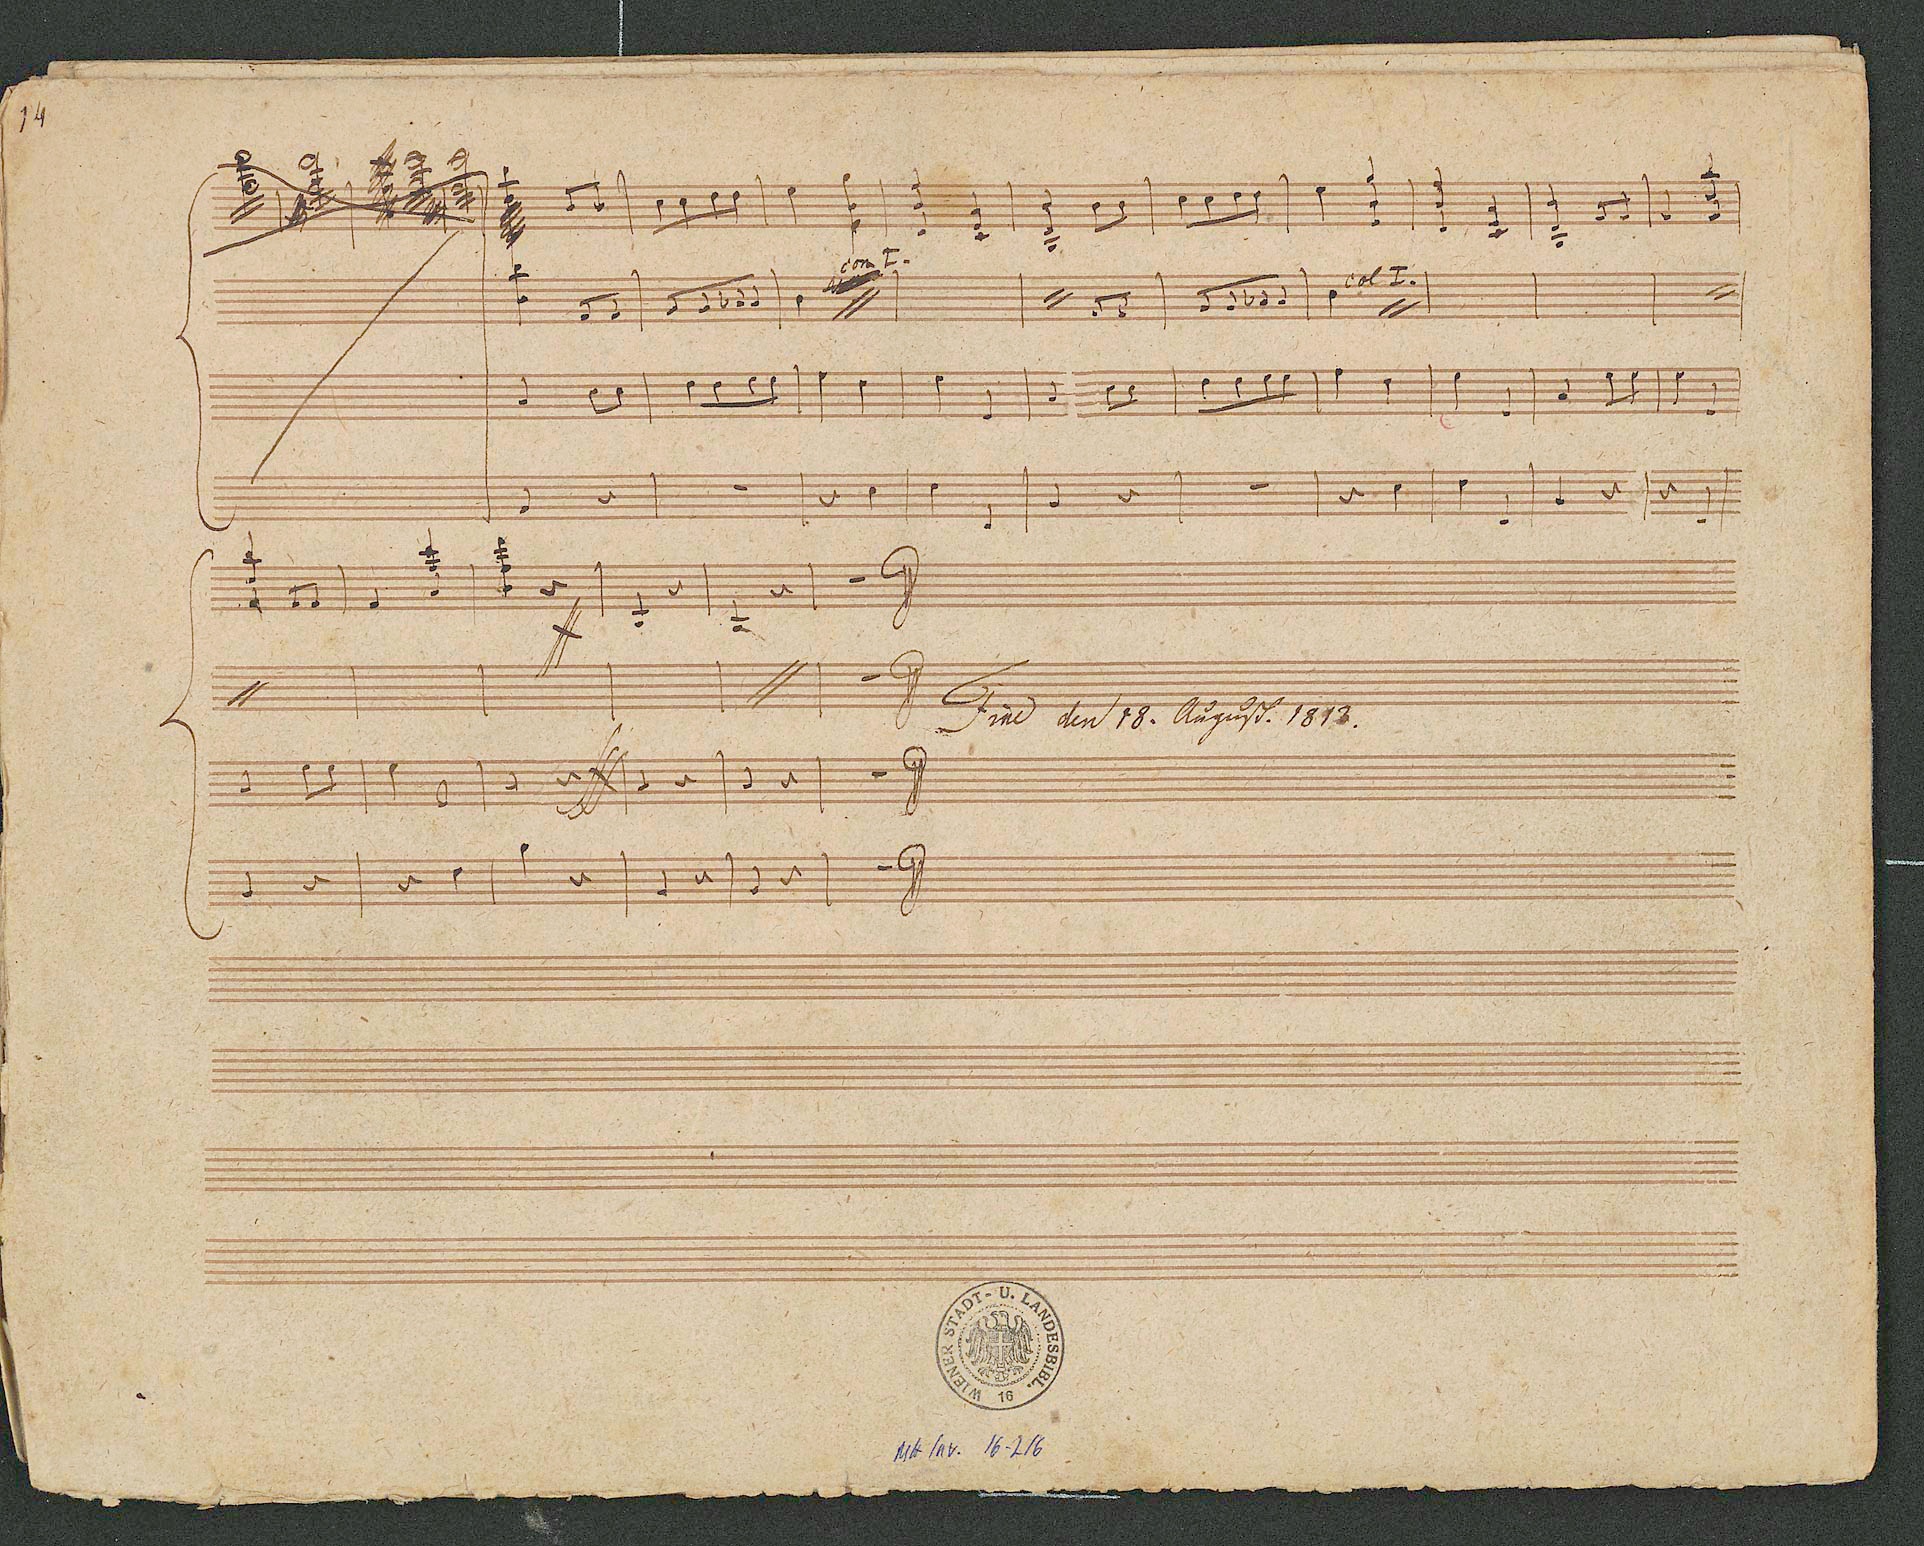 14
con I.
col I.
ff
Fine den 18. August. 1813.
ff
WIENER STADT- U. LANDESBIBL.
16
MH Inv. 16-216